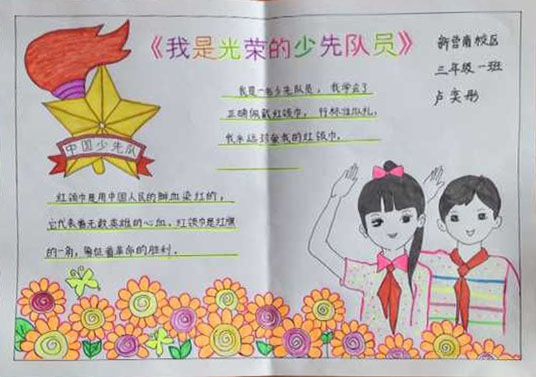 《我是光荣的少先队员》
新营南校区
三年级一班
卢奕彤
我是一名少先队员，我学会了
正确佩戴红领巾，行标准队礼，
我永远珍爱我的红领巾。
中国少先队
红领巾是用中国人民的鲜血染红的，
它代表着无数英雄的心血。红领巾是红旗
的一角，象征着革命的胜利.